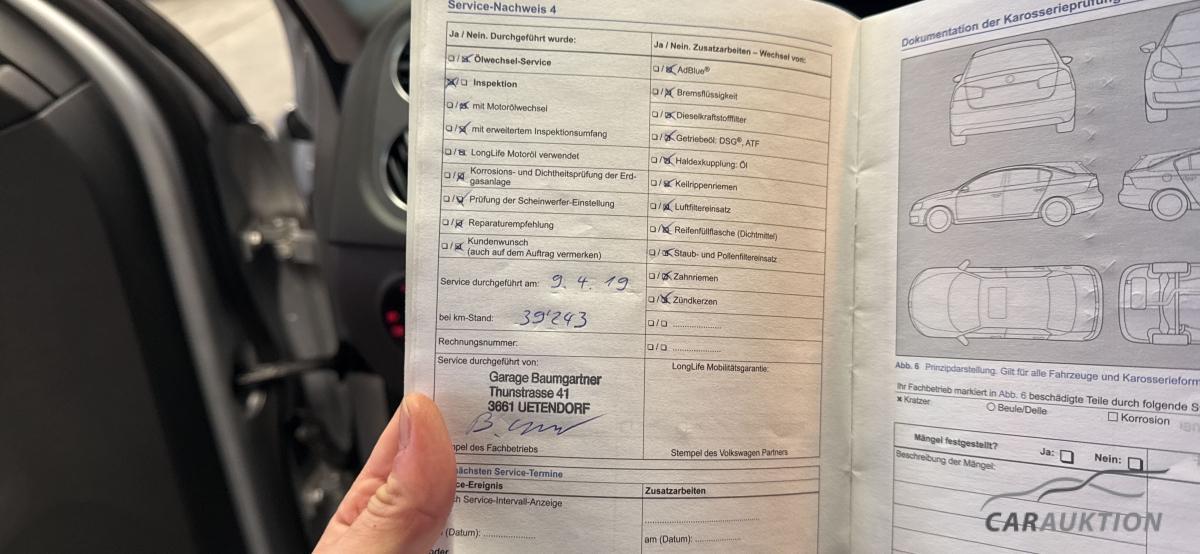 Service-Nachweis 4
Ja / Nein. Durchgeführt wurde:
Ölwechsel-Service
Inspektion
mit Motorölwechsel
mit erweitertem Inspektionsumfang
LongLife Motoröl verwendet
Korrosions- und Dichtheitsprüfung der Erd-
gasanlage
Prüfung der Scheinwerfer-Einstellung
Reparaturempfehlung
Kundenwunsch
(auch auf dem Auftrag vermerken)
Service durchgeführt am: 9. 4. 19
bei km-Stand: 39'243
Rechnungsnummer:
Service durchgeführt von:
Garage Baumgartner
Thunstrasse 41
3661 UETENDORF
mpel des Fachbetriebs
Ja / Nein. Zusatzarbeiten – Wechsel von:
AdBlue®
Bremsflüssigkeit
Dieselkraftstofffilter
Getriebeöl: DSG®, ATF
Haldexkupplung: Öl
Keilrippenriemen
Luftfiltereinsatz
Reifenfüllflasche (Dichtmittel)
Staub- und Pollenfiltereinsatz
Zahnriemen
Zündkerzen
LongLife Mobilitätsgarantie:
Stempel des Volkswagen Partners
nächsten Service-Termine
ce-Ereignis
ch Service-Intervall-Anzeige
(Datum):
oder
Zusatzarbeiten
am (Datum):
Dokumentation der Karosserieprüfung
Abb. 6 Prinzipdarstellung. Gilt für alle Fahrzeuge und Karosserieform
Ihr Fachbetrieb markiert in Abb. 6 beschädigte Teile durch folgende S
Kratzer
Beule/Delle
Korrosion
Mängel festgestellt?
Ja:
Nein:
Beschreibung der Mängel:
CARAUKTION